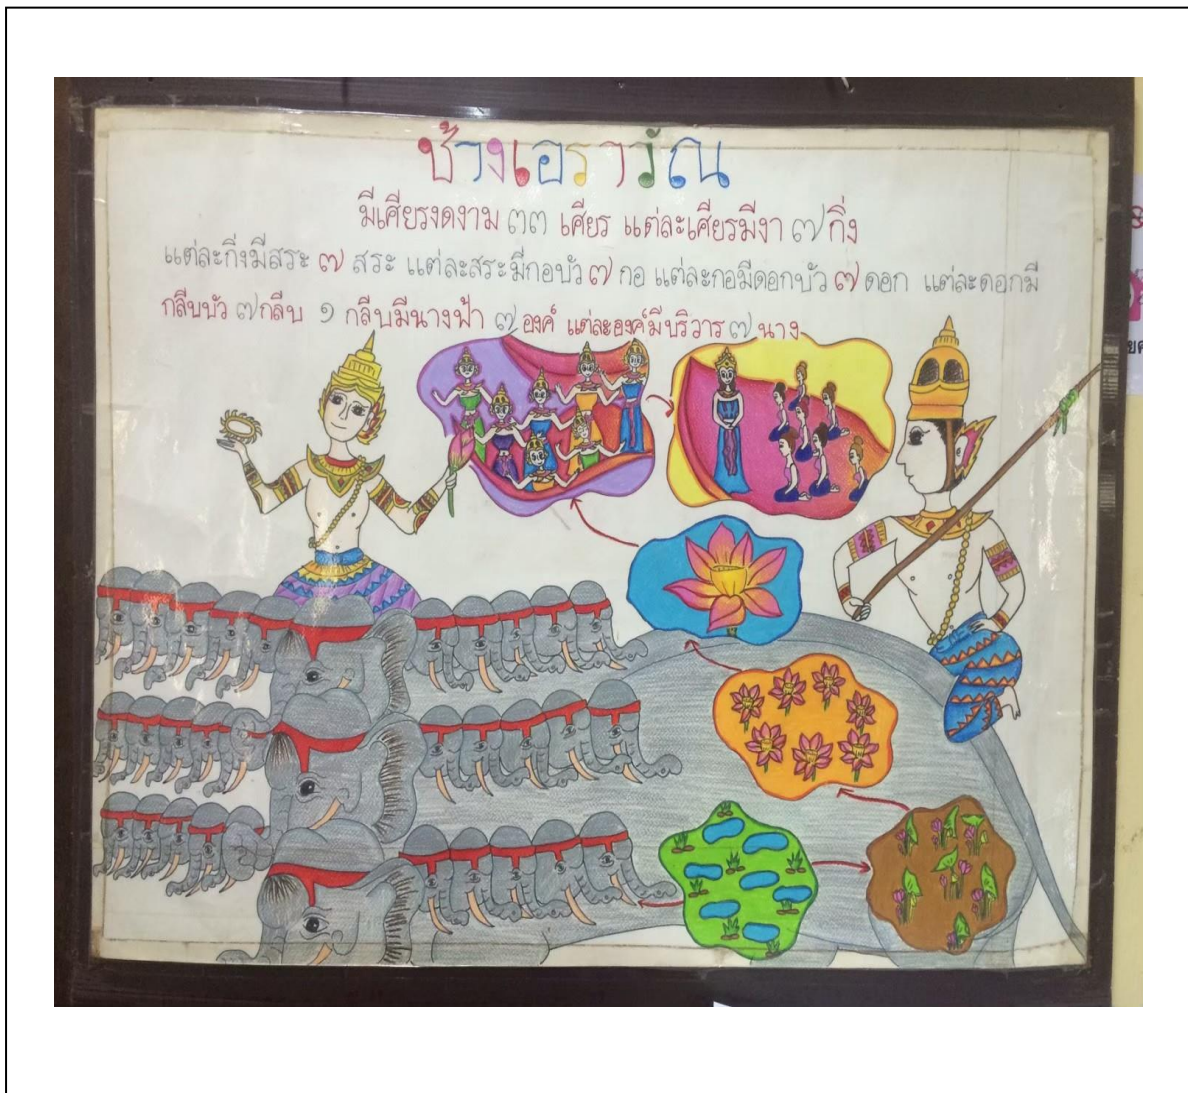 ช้างเอราวัณ
มีเศียรงดงาม ๓๓ เศียร แต่ละเศียรมีงา ๗ กิ่ง
แต่ละกิ่งมีสระ ๗ สระ แต่ละสระมีกอบัว ๗ กอ แต่ละกอมีดอกบัว ๗ ดอก แต่ละดอกมี
กลีบบัว ๗ กลีบ ๑ กลีบมีนางฟ้า ๗ องค์ แต่ละองค์มีบริวาร ๗ นาง